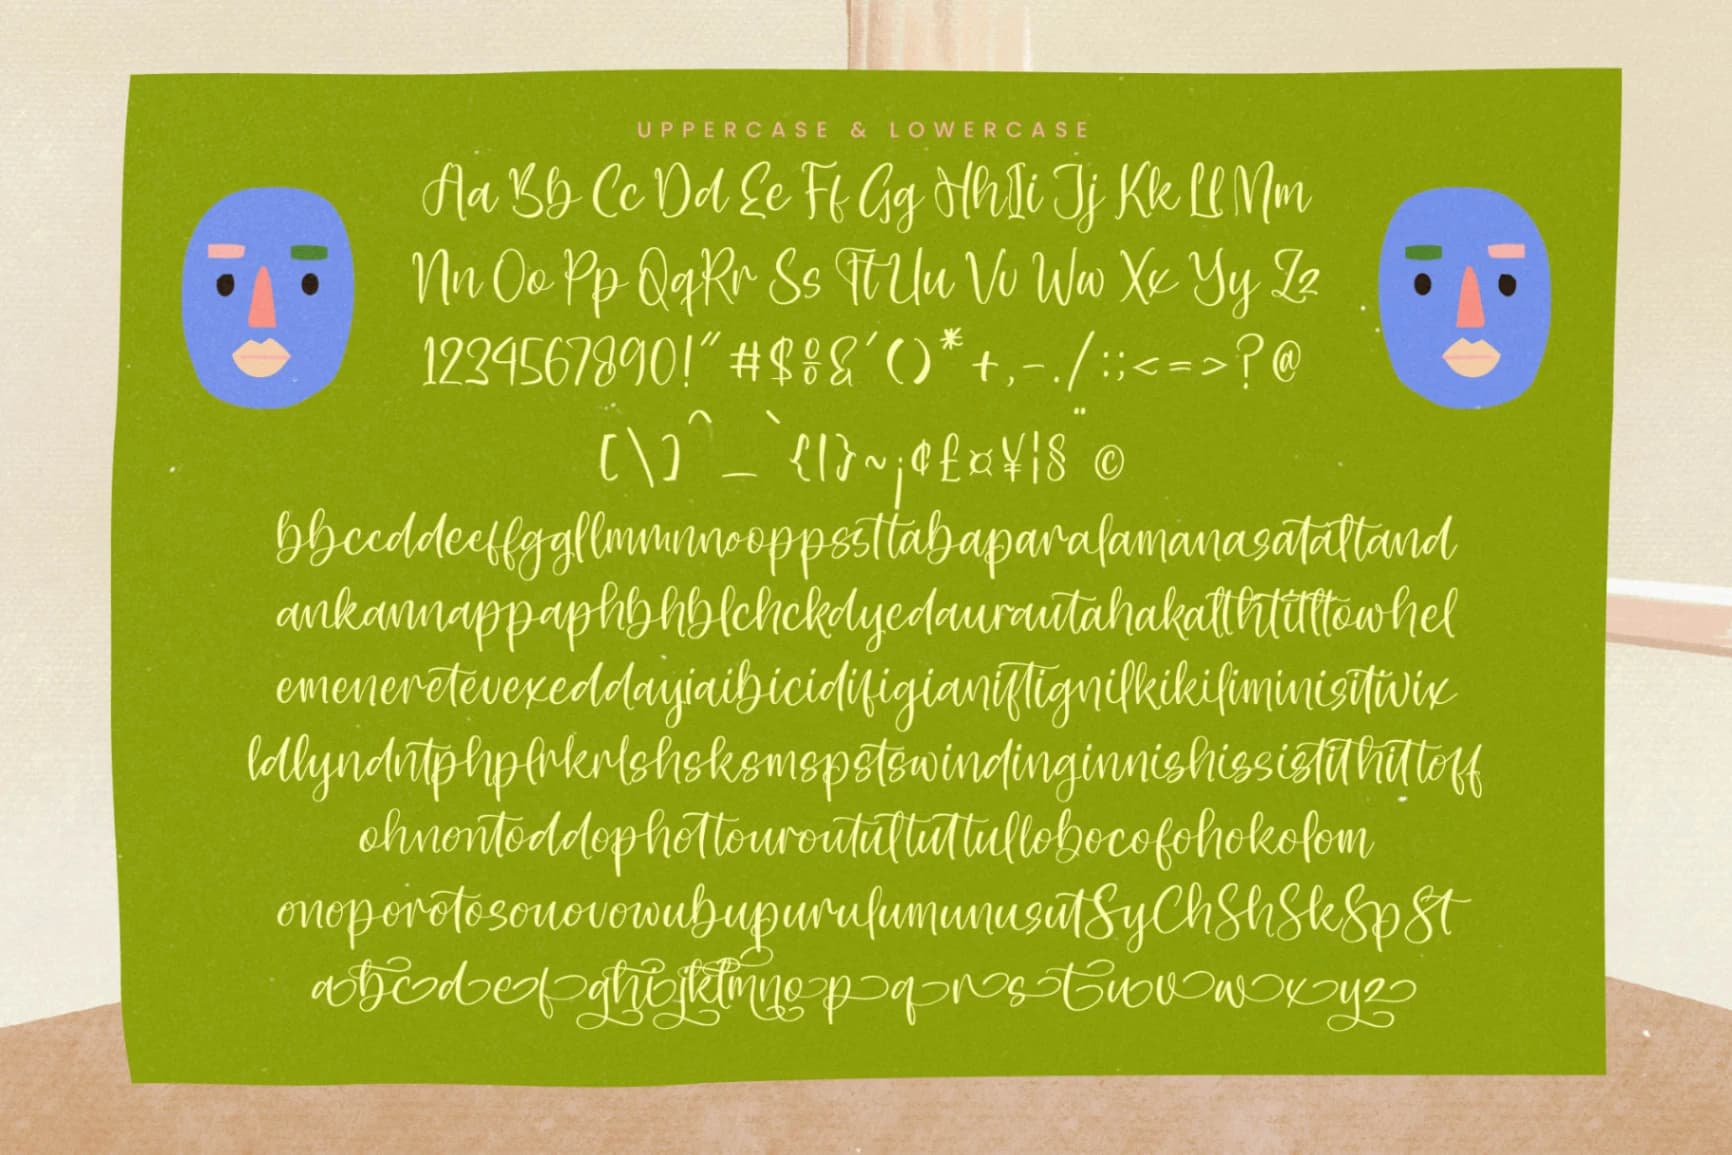 UPPERCASE & LOWERCASE
Aa Bb Cc Dd Ee Ff Gg Hh Ii Jj Kk Ll Mm
Nn Oo Pp Qq Rr Ss Tt Uu Vv Ww Xx Yy Zz
1234567890!"#$%&'()*+,-./:;<=>?@
[\]^_`{|}~¡¢£¤¥¦§¨©
bbccddeeffggllmmnnooppssttabaparalamanasataltand
ankannappaphbhblchckdyedaurautahakatthtitttowhel
emeneretevexeddayjaibicidifigianiftignilkikiliminisitivix
ldlyndntphplrkrlshsksmspstswindinginnishissistithittoff
ohnontoddophottouroutultuttullobocofohokolom
onoporotosouovowubupurulumunusutSyChShSkSpSt
abcdefghijklmnopqrstuvwxyz